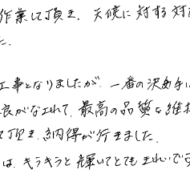 作業して頂き、天候に対する対
た。
工事となりましたが、一番の決め手は
良がなされて、最高の品質を維持
て頂き、納得が行きました。
は、キラキラと輝いてとてもきれいです